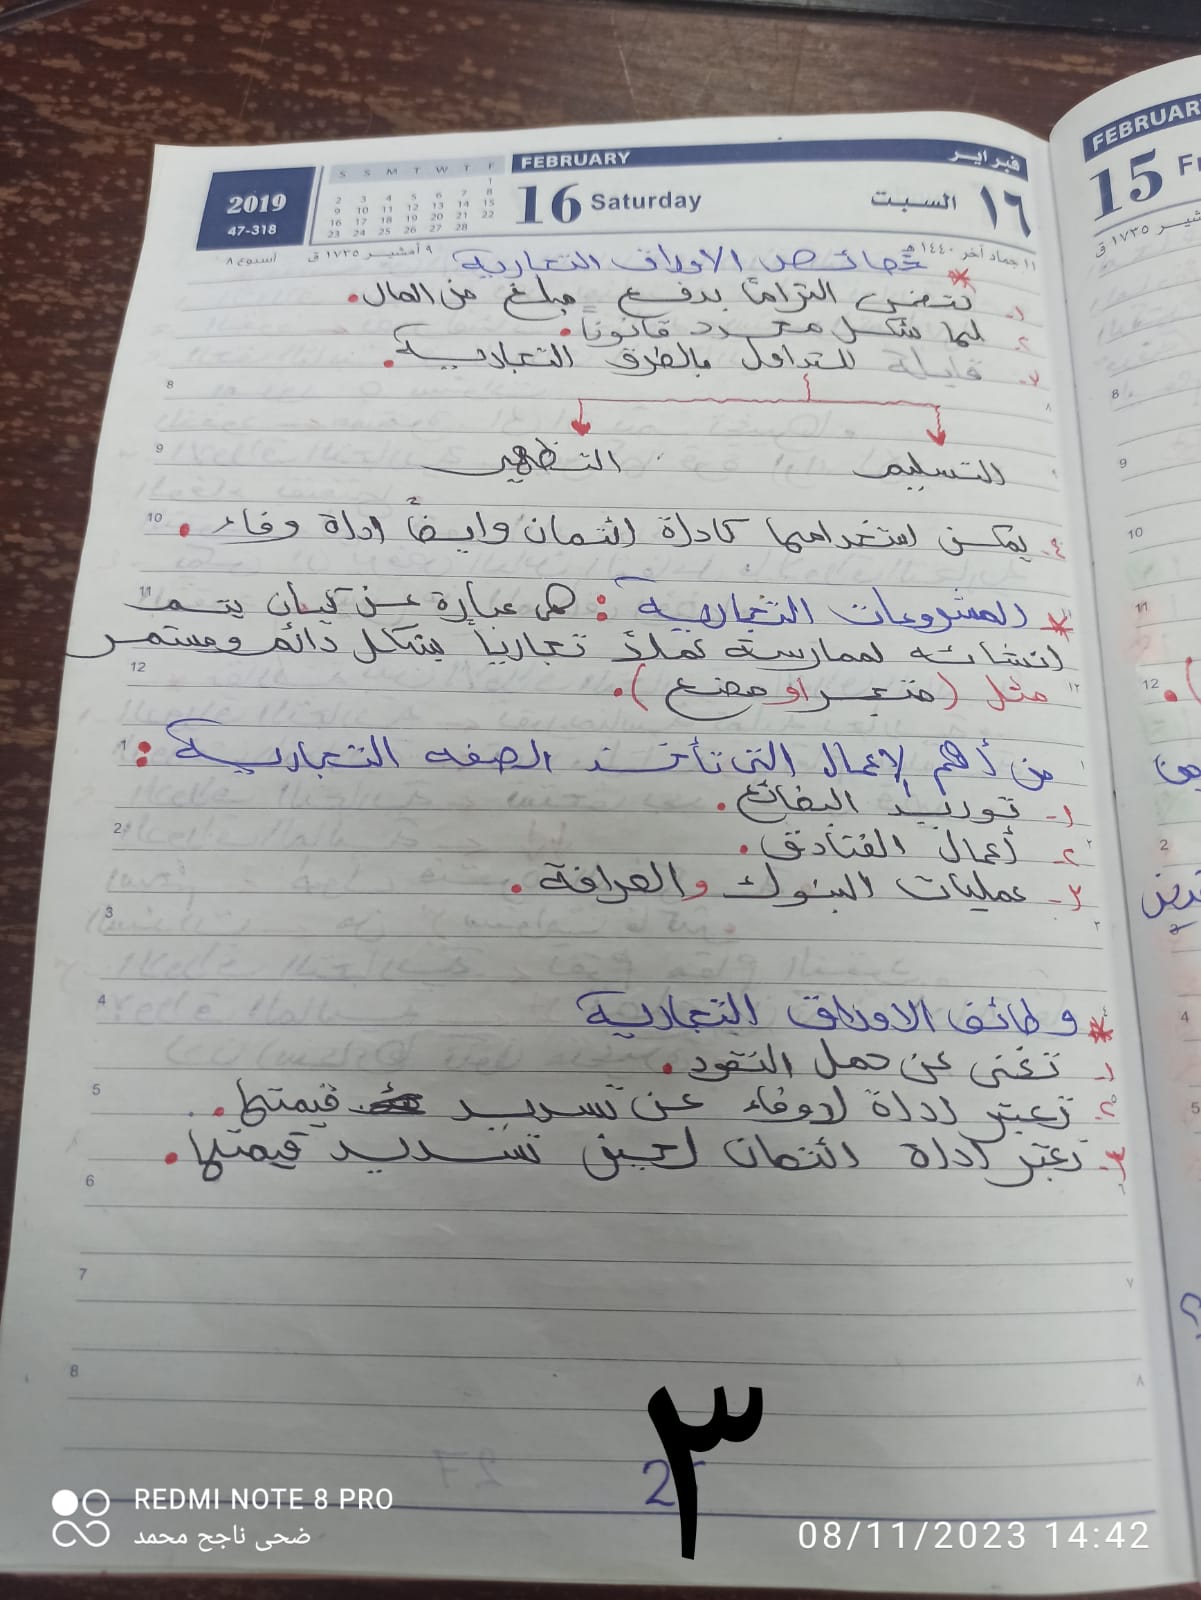 FEBRUARY فبراير
2019
47-318
S S M T W T F
1
2 3 4 5 6 7 8
9 10 11 12 13 14 15
16 17 18 19 20 21 22
23 24 25 26 27 28
16 Saturday السبت ١٦
١١ جماد آخر ١٤٤٠ هـ ٩ أمشير ١٧٣٥ ق أسبوع ٨
* خصائص الاوراق التجارية
١- تتضمن التزاماً بدفع مبلغ من المال.
٢- لها شكل محدد قانوناً.
٣- قابلة للتداول بالطرق التجارية.
التسليم التظهير
٤- يمكن استخدامها كاداة ائتمان وايضاً اداة وفاء.
* المشروعات التجارية: هي عبارة عن كيان يتم
انشائه لممارسة عملاً تجارياً بشكل دائم ومستمر
مثل (متجر او مصنع).
من أهم الاعمال التي تأخذ الصفه التجارية:
١- توريد البضائع.
٢- أعمال الفنادق.
٣- عمليات البنوك والصرافة.
* وظائف الاوراق التجارية
١- تغنى عن حمل النقود.
٢- تعتبر اداة لوفاء عن تسديد قيمتها.
٣- تعتبر اداة ائتمان لحين تسديد قيمتها.
8
9
10
11
12
1
2
3
4
5
6
7
8
٣
FEBRUAR
15 Fr
REDMI NOTE 8 PRO
ضحى ناجح محمد
08/11/2023 14:42